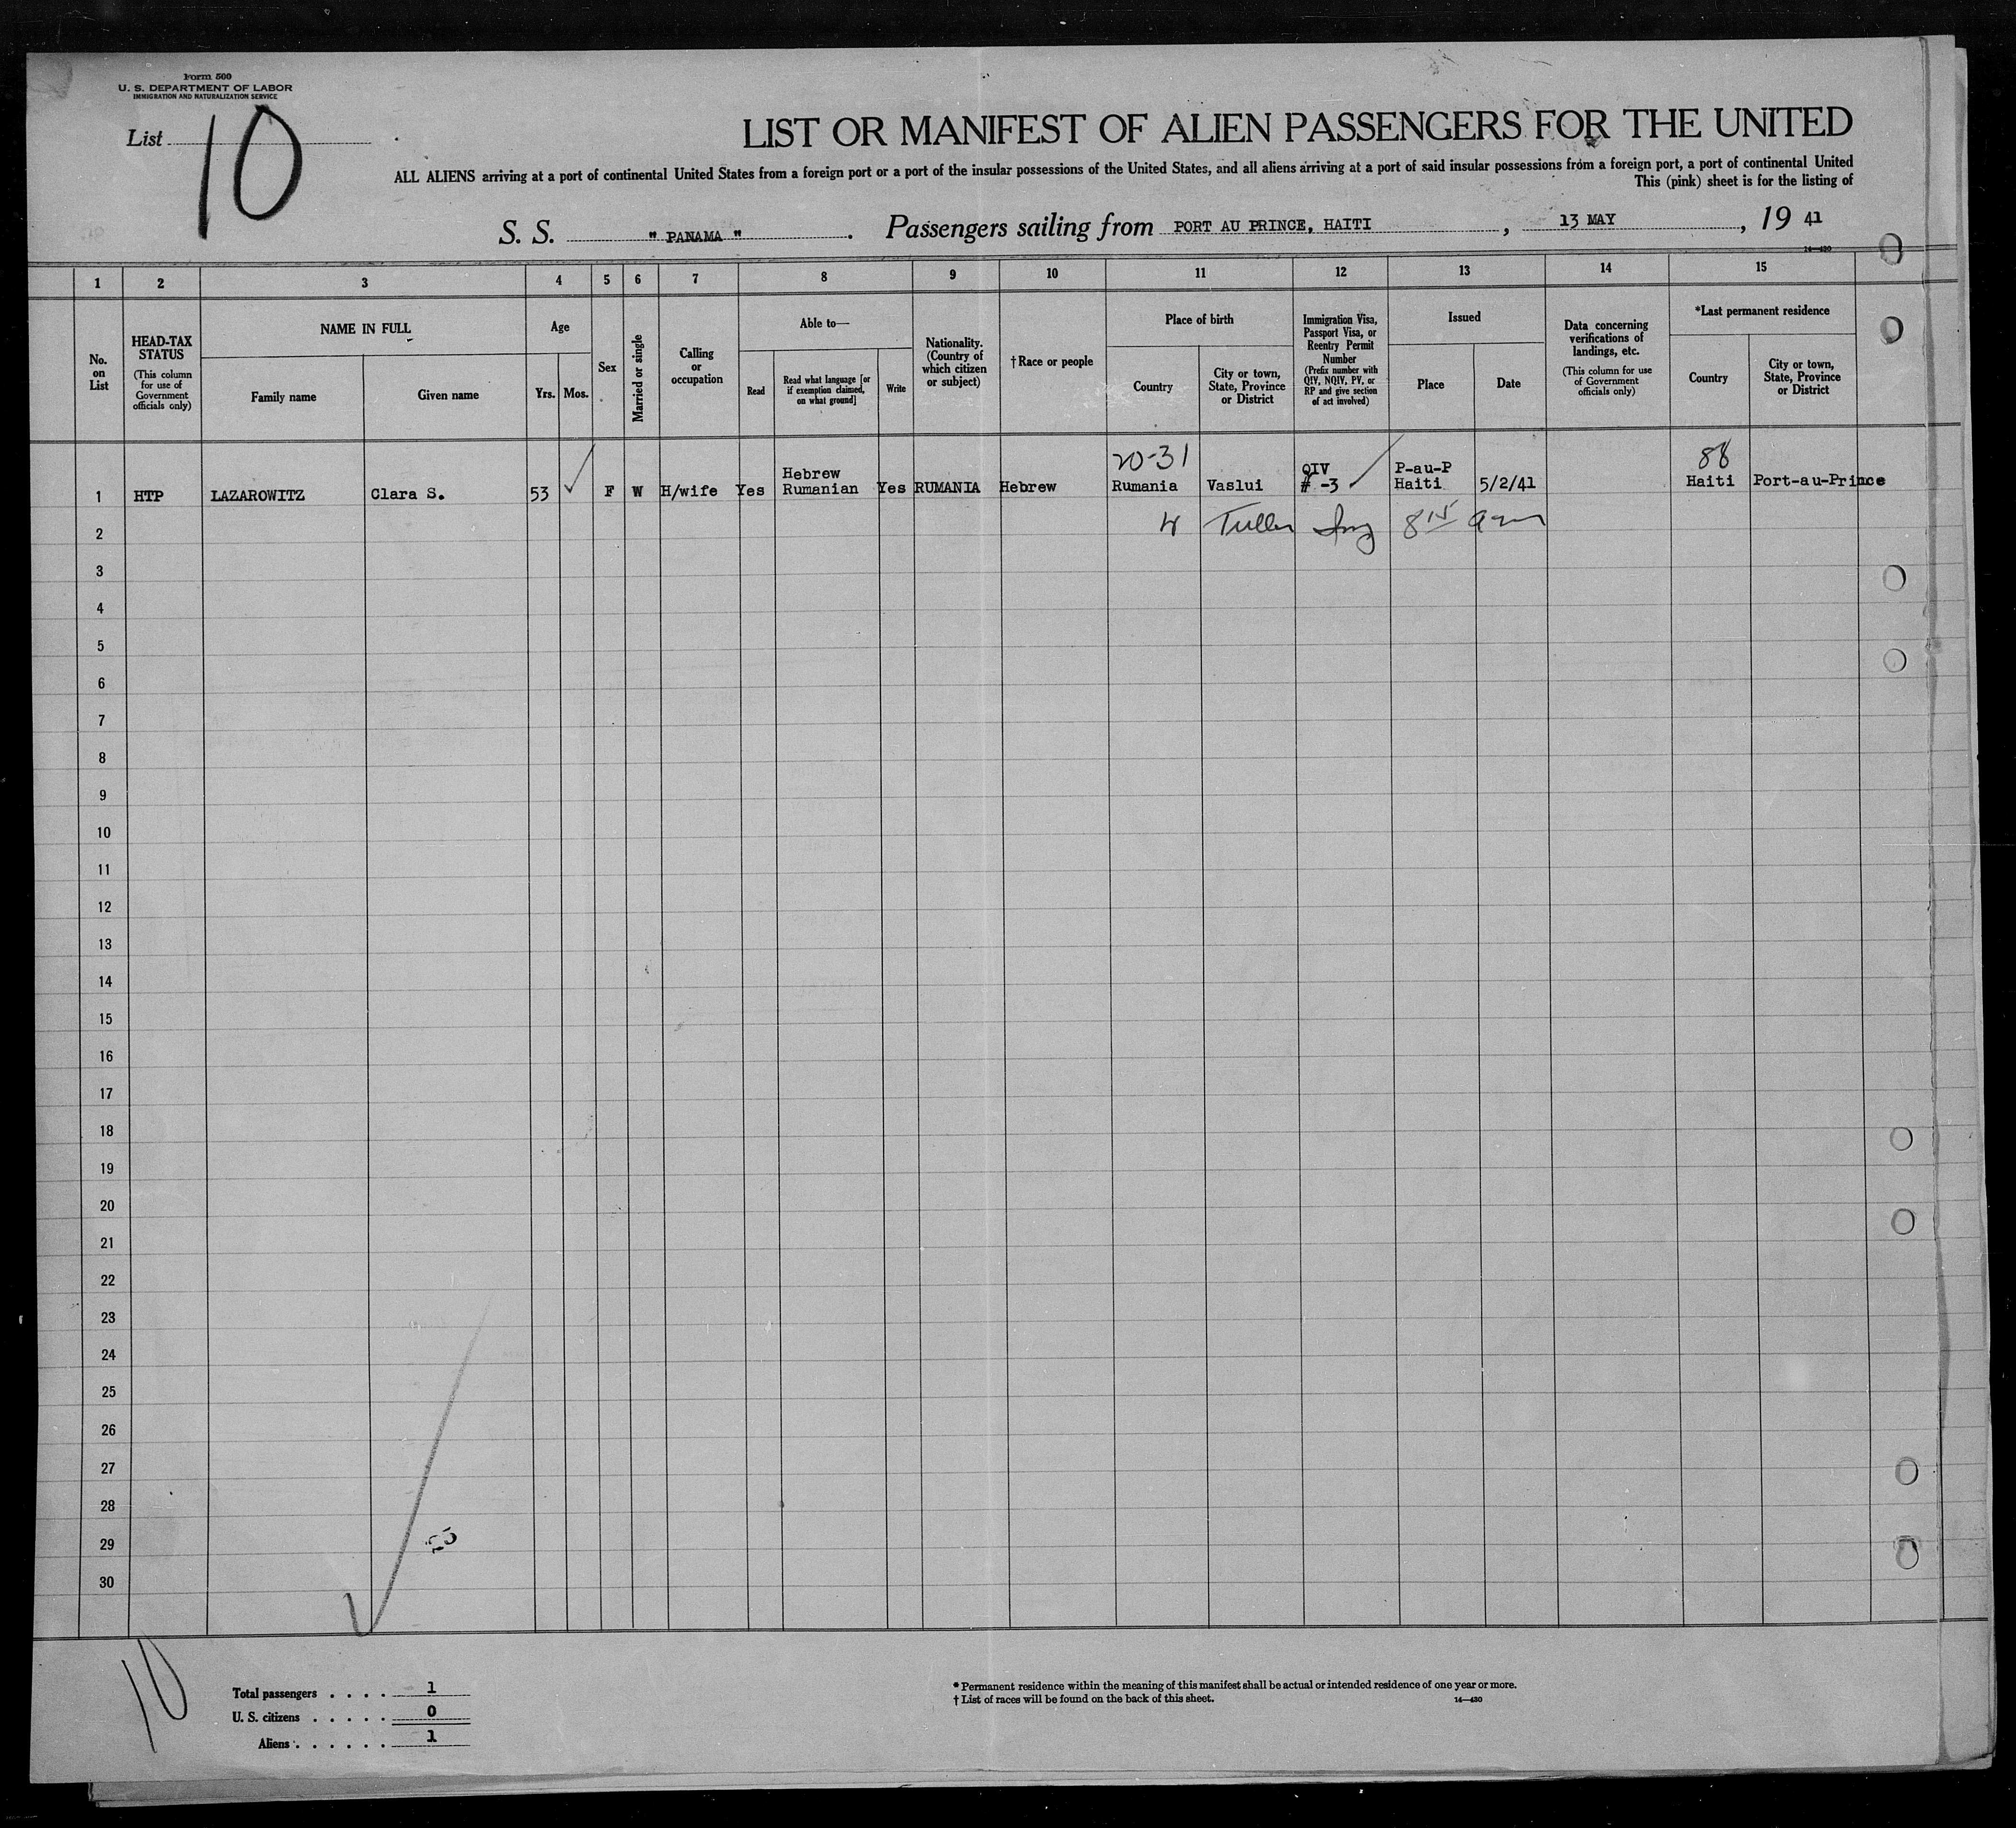 Form 500
U. S. DEPARTMENT OF LABOR
IMMIGRATION AND NATURALIZATION SERVICE
List 10
LIST OR MANIFEST OF ALIEN PASSENGERS FOR THE UNITED
ALL ALIENS arriving at a port of continental United States from a foreign port or a port of the insular possessions of the United States, and all aliens arriving at a port of said insular possessions from a foreign port, a port of continental United
This (pink) sheet is for the listing of
S. S. " PANAMA " . Passengers sailing from PORT AU PRINCE, HAITI , 13 MAY , 19 41
14—430
1 2 3 4 5 6 7 8 9 10 11 12 13 14 15
No. on List
HEAD-TAX STATUS
(This column for use of Government officials only)
NAME IN FULL
Family name
Given name
Age
Yrs. Mos.
Sex
Married or single
Calling or occupation
Able to—
Read
Read what language [or if exemption claimed, on what ground]
Write
Nationality. (Country of which citizen or subject)
† Race or people
Place of birth
Country
City or town, State, Province or District
Immigration Visa, Passport Visa, or Reentry Permit Number
(Prefix number with QIV, NQIV, PV, or RP and give section of act involved)
Issued
Place
Date
Data concerning verifications of landings, etc.
(This column for use of Government officials only)
*Last permanent residence
Country
City or town, State, Province or District
20-31 88
Hebrew QIV P-au-P
1 HTP LAZAROWITZ Clara S. 53 ✓ F W H/wife Yes Rumanian Yes RUMANIA Hebrew Rumania Vaslui # -3 Haiti 5/2/41 Haiti Port-au-Prince
2 Tuller 8 15
3
4
5
6
7
8
9
10
11
12
13
14
15
16
17
18
19
20
21
22
23
24
25
26
27
28
29
30
10
Total passengers . . . . 1
U. S. citizens . . . . . 0
Aliens . . . . . . 1
* Permanent residence within the meaning of this manifest shall be actual or intended residence of one year or more.
† List of races will be found on the back of this sheet. 14—430